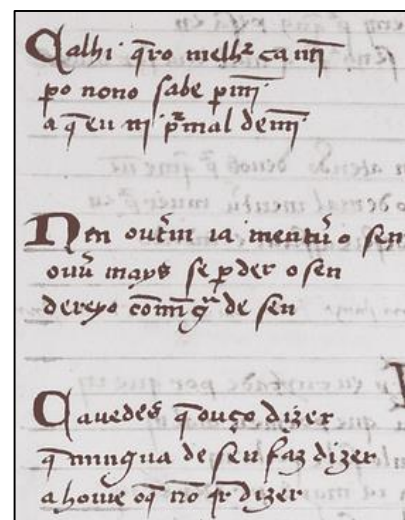 Calhi q̃ro melhʳ ca mī
po nono sabe p mī
a q̃ eu ni pmal de mī
Nen ouũm ia mentũ o sen
ouũ mays se pder o sen
dereyo cõmigᵃ de sen
Ca uedes q̃ ouço dizer
q̃ mingua de sen faz dizer
a home oq̃ nõ qr dizer